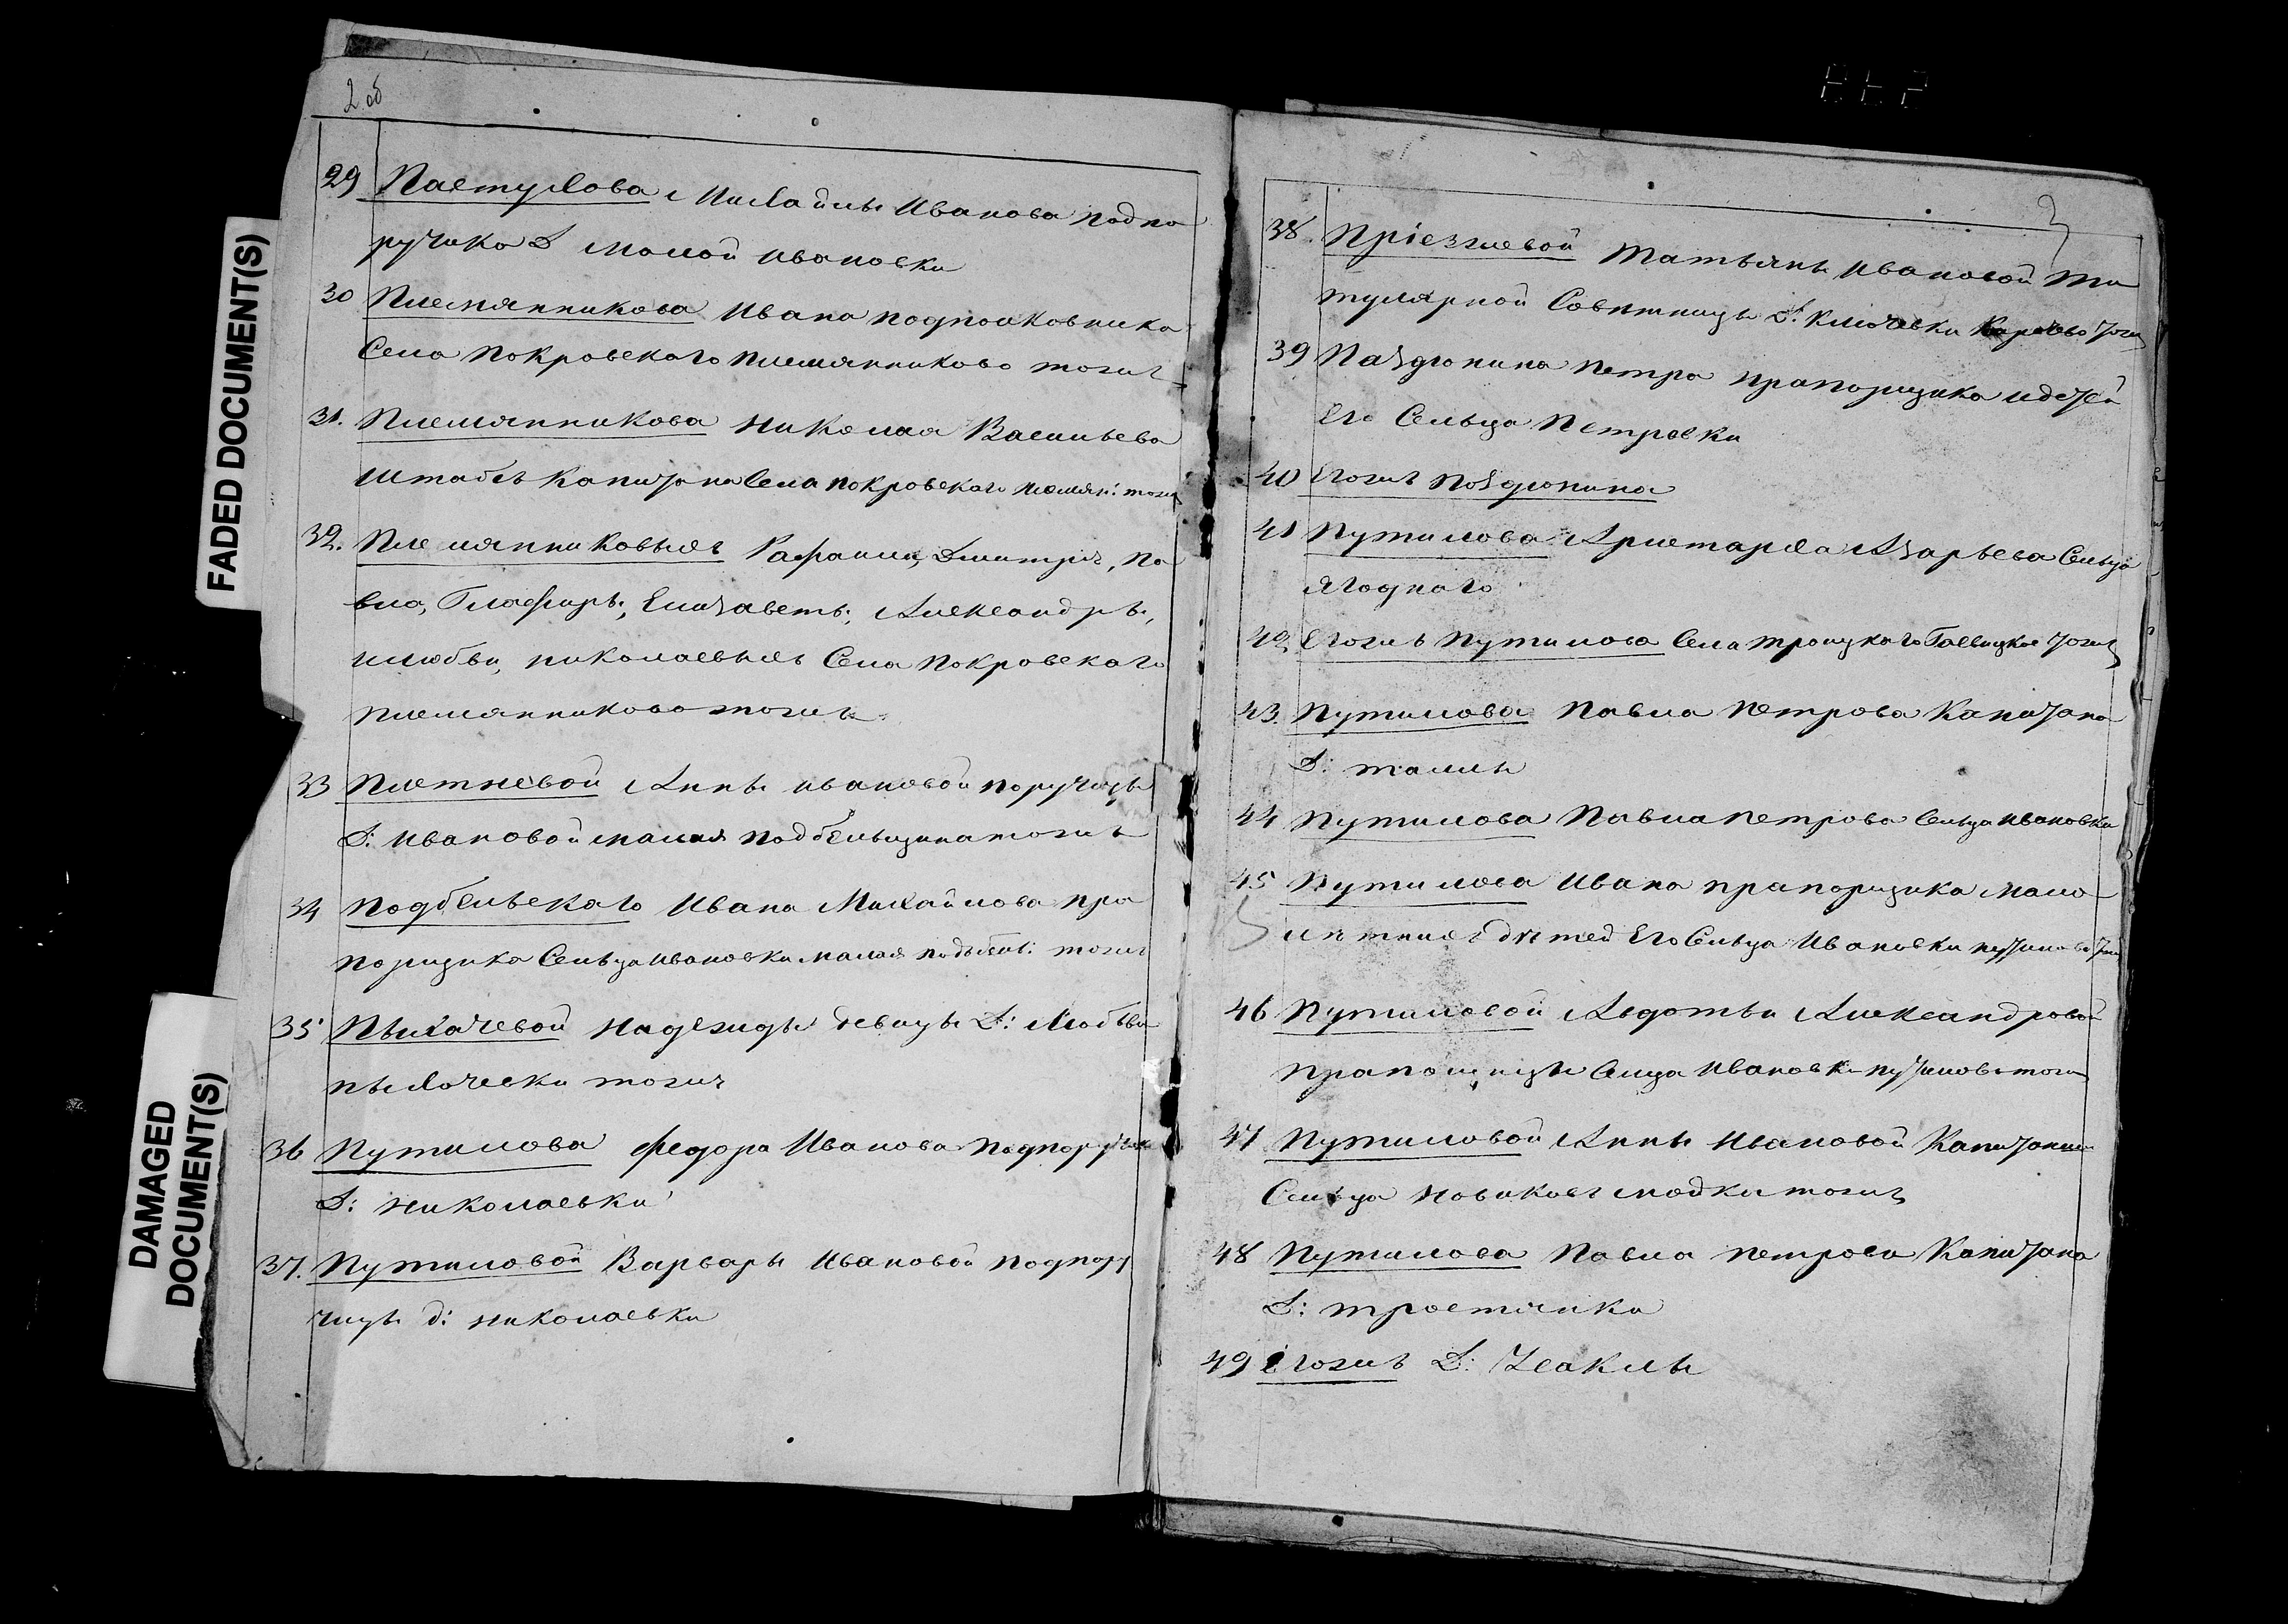 FADED DOCUMENT(S)
DAMAGED
DOCUMENT(S)
2 об
29 Пастухова Михайлы Иванова подпо
ручика Д Малой Ивановки
30 Племянникова Ивана подполковника
Села Покровского Племянниково тожъ
31. Племянникова Николая Васильева
Штабсъ Капитана Села Покровского Племян: тожъ
32. Племянниковыхъ Рафаила, Дмитрія, Па
вла, Глафиры, Елизаветы, Александры,
и Любви, Николаевыхъ Села Покровского
Племянниково тожъ
33 Плетневой Анны Ивановой поручицы
Д: Ивановой малая Подбельщина тожъ
34 Подбельскаго Ивана Михайлова пра
порщика Сельца Ивановки малая тожъ
35 Пыхачевой Надежды девицы Д: Любовки
Пыхачевки тожъ
36 Путилова Федора Иванова Подпоручика
Д: Николаевки
37. Путиловой Варвары Ивановой подпору
чицы д: Николаевки
3
38. Пріезжевой Татьяны Ивановой Ти
тулярной Советницы Д: Ключевки тожъ
39 Паздюнина Петра прапорщика и детей
Его Сельца Петровки
40 Егожъ Поздюнина
41 Путилова Аристарха Азарьева Сельца
Ягоднаго
42 Егожъ Путилова Села Троицкаго тожъ
43. Путилова Павла Петрова Капитана
Д: Талы
44 Путилова Павла Петрова Сельца Ивановки
45 Путилова Ивана прапорщика Мало
летнихъ детей Его Сельца Ивановки Путилово тожъ
46 Путиловой Авдотьи Александровой
Прапорщицы Сельца Ивановки Путилово тожъ
47 Путиловой Анны Ивановой Капитанши
Сельца тожъ
48 Путилова Павла Петрова Капитана
Д: Тростянки
49 Егожъ Д: Чсаклы